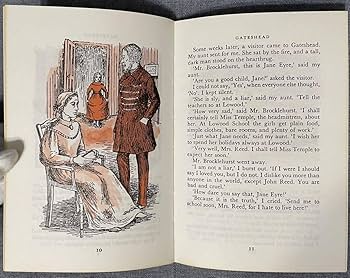 GATESHEAD
Some weeks later, a visitor came to Gateshead.
My aunt sent for me. She sat by the fire, and a tall,
dark man stood on the hearthrug.
'Mr. Brocklehurst, this is Jane Eyre,' said my
aunt.
'Are you a good child, Jane?' asked the visitor.
I could not say, 'Yes', when everyone else thought,
'No'. I kept silent.
'She is sly, and a liar,' said my aunt. 'Tell the
teachers so at Lowood.'
'Very well, Mrs. Reed,' said Mr. Brocklehurst, 'I shall
certainly tell Miss Temple, the headmistress, about
her. At Lowood School the girls get plain food,
simple clothes, bare rooms, and plenty of work.'
'Just what Jane needs,' said my aunt. 'I wish her
to spend her holidays always at Lowood.'
'Very well, Mrs. Reed. I shall tell Miss Temple to
expect her soon.'
Mr. Brocklehurst went away.
'I am not a liar,' I burst out. 'If I were I should
say I loved you, but I do not. I dislike you more than
anyone in the world, except John Reed. You are
bad and cruel.'
'How dare you say that, Jane Eyre!'
'Because it is the truth,' I cried. 'Send me to
school soon, Mrs. Reed, for I hate to live here!'
10
11